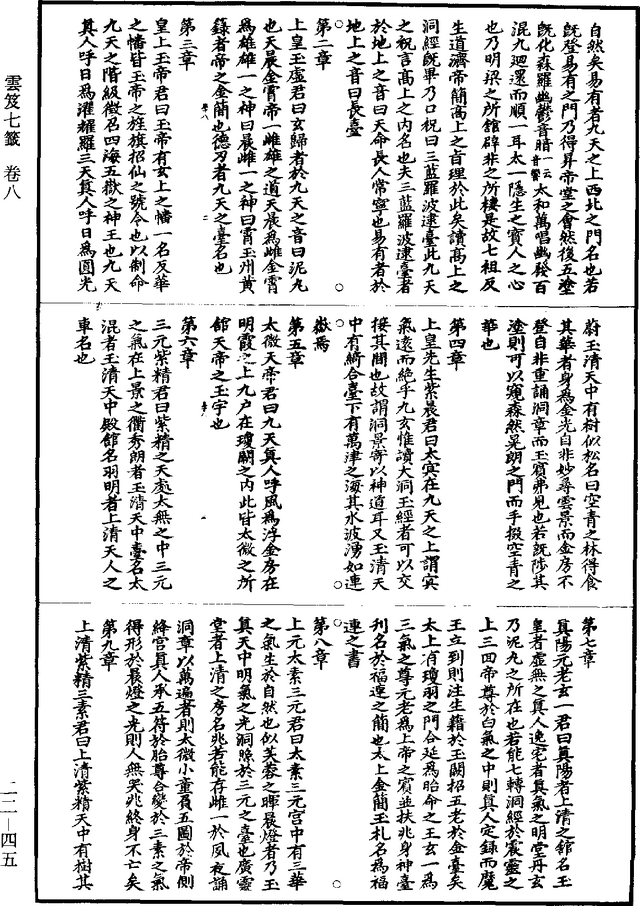 自然矣易有者九天之上西北之門名也若
旣登易有之門乃得昇帝堂之會然後五塗
旣化森羅幽鬱音腊一云音鬱太和萬唱幽發百
混九廻還而順一耳太一隱生之寶人之心
也乃明梁之所館辟非之所棲是故七祖反
生道濟帝簡高上之旨理於此矣讀高上之
洞經旣畢乃口祝曰三藍羅波逮臺此九天
之祝言高上之內名也夫三藍羅波逮臺者
於地上之音曰天命長人常寧也易有者於
地上之音曰長臺
第二章
上皇玉虛君曰玄歸者於九天之音曰泥丸
也天晨金霄帝一雌雄之道天晨爲雌金霄
爲雄雄一之神曰晨雌一之神曰霄玉州黃
籙者帝之金簡也德刃者九天之臺名也
第三章
皇上玉帝君曰玉帝有玄上之幡一名反華
之幡皆玉帝之旌旗招仙之號令也以制命
九天之階級徵召四海五嶽之神王也九天
真人呼日爲濯耀羅三天真人呼日爲圓光
蔚玉清天中有樹似松名曰空青之林得食
其華者身爲金光自非妙尋雲景而金房不
登自非重誦洞章而玉賓弗見也若旣陟其
塗則可以窺森然晃朗之門而手掇空青之
華也
第四章
上皇先生紫晨君曰太冥在九天之上謂冥
氣遠而絶乎九玄惟讀大洞玉經者可以交
接其間也故謂洞景寄以神道耳又玉清天
中有綺合臺下有萬津之海其水波湧如連
嶽焉
第五章
太微天帝君曰九天真人呼風爲浮金房在
明霞之上九戶在瓊闕之內此皆太微之所
館天帝之玉宇也
第六章
三元紫精君曰紫精之天處太無之中三元
之氣在上景之衢秀朗者玉清天中臺名太
混者玉清天中殿館名羽明者上清天人之
車名也
第七章
真陽元老玄一君曰真陽者上清之館名玉
皇者虛無之真人逸宅者真氣之明堂丹玄
乃泥丸之所在也若能七轉洞經於震靈之
上三回帝尊於白氣之中則真人定錄而魔
王立到則注生籍於玉闕招五老於金臺矣
太上有瓊羽之門合延爲胎命之王玄一爲
三氣之尊元老爲上帝之賓並扶兆身神臺
刊名於福連之簡也太上金簡玉札名爲福
連之書
第八章
上元太素三元君曰太素三元宮中有三華
之氣生於自然也似芙蓉之暉晨燈者乃玉
真天中明氣之光洞暸於三元之臺也廣靈
堂者上清之房名兆若能存雌一於夙夜誦
洞章以萬遍者則太微小童負五圖於帝側
絳宮真人承五符於胎尊合變於三素之氣
得形於晨燈之光則人無哭兆終身不亡矣
第九章
上清紫精三素君曰上清紫精天中有樹其
雲笈七籤 卷八
二二—四五